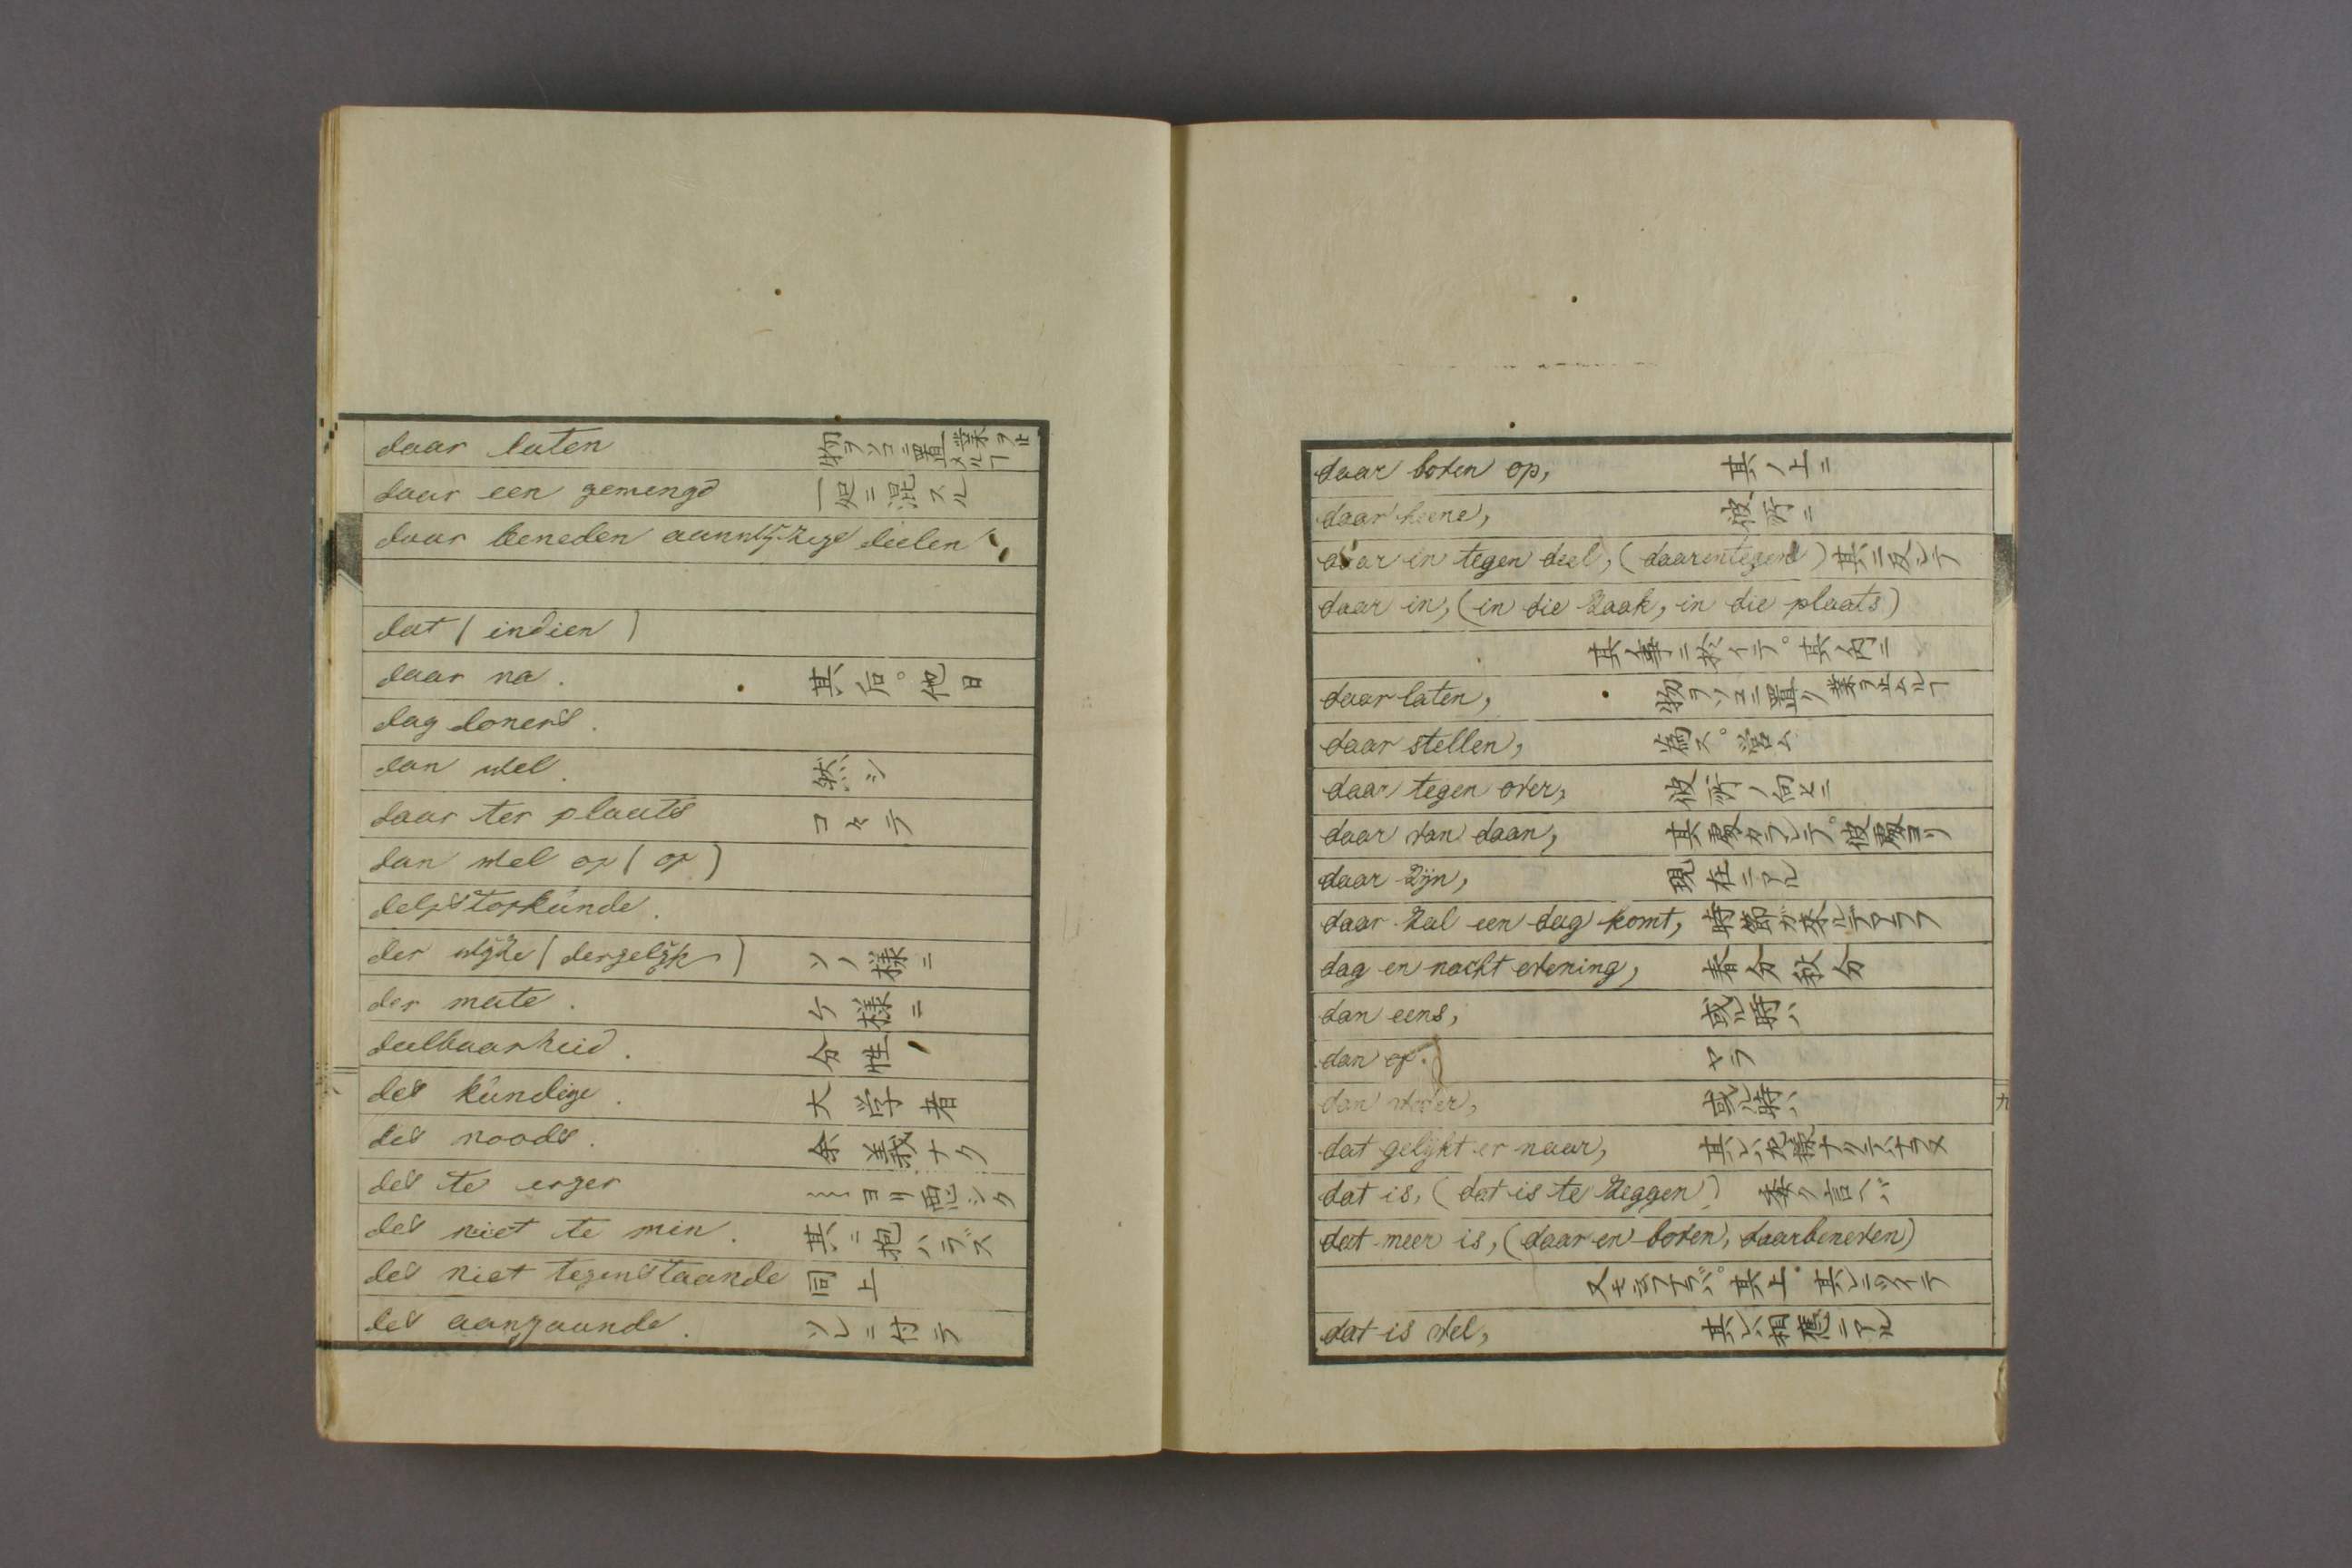 daar laten 物ヲソコニ置 業ヲ止メルヿ
daar een gemengd 一処ニ混スル
daar beneden deelen
dat (indien)
daar na. 其后。他日
dag doners.
dan wel. 然シ
daar ter plaats コヽラ
dan wel op (op)
der wijze (dergelijk) ソノ様ニ
der mate. ケ様ニ
deelbaarheid. 分性
des kundige. 大学者
des noods. 余義ナク
des te erger ヨリ悪シク
des niet te min. 其ニ抱ハラズ
des niet tegenstaande 同上
des aangaande. ソレニ付テ
daar boven op, 其ノ上ニ
daar heene, 彼所ニ
daar in tegen deel, (daarentegen) 其ニ反シテ
daar in, (in die zaak, in die plaats)
其事ニ於イテ。其内ニ
daar laten, 物ヲソコニ置ク 業ヲ止ムルヿ
daar stellen, 為ス。営ム
daar tegen over, 彼所ノ向ヒニ
daar van daan, 其處カラシテ。彼處ヨリ
daar zijn, 現在ニアル
daar zal een dag komt, 時節ガ来ルデアラフ
dag en nacht evening, 春分秋分
dan eens, 或ル時ハ
dan op. ヤラ
dan weder, 或ル時ハ
dat gelijkt er naar, 其レハ
dat is, (dat is te zeggen) 言ヘバ
dat meer is, (daar en boven, daarbeneven)
其上。其レニツイテ
dat is wel, 其レハ相應ニアル
九